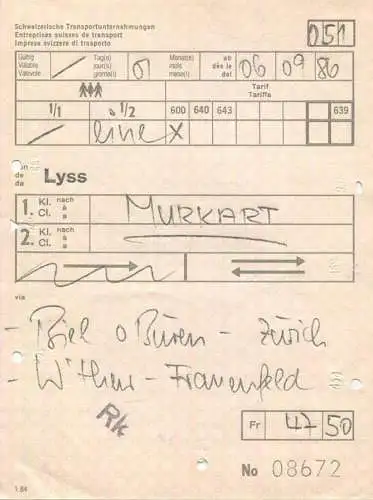 Schweizerische Transportunternehmungen
Entreprises suisses de transport
Imprese svizzere di trasporto
051
Gültig Valable Valevole
Tag(e) jour(s) giorno(i)
Monat(e) mois mese(i)
ab dès le dal
06 09 86
Tarif
Tariffa
1/1 1/2 600 640 643 639
eine X
von de da
Lyss
1. Kl. Cl. nach à a
2. Kl. Cl. nach à a
MURKART
via
- Biel o Büren - Zürich
- W'thur - Frauenfeld
Rk
Fr 47 50
No 08672
1 84